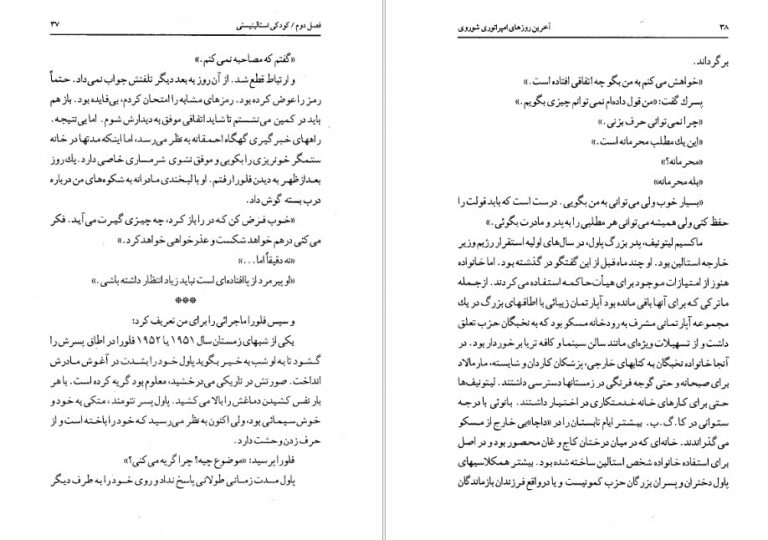 فصل دوم / کودکی استالینیستی ۳۷
«گفتم که مصاحبه نمی‌کنم.»
و ارتباط قطع شد. از آن روز به بعد دیگر تلفنش جواب نمی‌داد. حتماً
رمز را عوض کرده بود. رمزهای مشابه را امتحان کردم، بی‌فایده بود. باز هم
باید در کمین می‌نشستم تا شاید اتفاقی موفق به دیدارش شوم. اما بی‌نتیجه.
راههای خبرگیری گهگاه احمقانه به نظر می‌رسد، اما اینکه مدتها در خانه
ستمگر خونریزی را بکوبی و موفق نشوی شرمساری خاصی دارد. یك روز
بعداز ظهر به دیدن فلورا رفتم. او با لبخندی مادرانه به شکوه‌های من درباره
درب بسته گوش داد.
«خوب فرض کن که در را باز کرد، چه چیزی گیرت می‌آید. فکر
می‌کنی در هم خواهد شکست و عذرخواهی خواهد کرد.»
«نه دقیقاً اما...»
«او پیرمرد از پاافتاده‌ای است نباید زیاد انتظار داشته باشی.»
***
و سپس فلورا ماجرائی را برای من تعریف کرد:
یکی از شبهای زمستان سال ۱۹۵۱ یا ۱۹۵۲ فلورا در اطاق پسرش را
گشود تا به او شب به خیر بگوید پاول خود را بشدت در آغوش مادرش
انداخت. صورتش در تاریکی می‌درخشید، معلوم بود گریه کرده است. با هر
بار نفس کشیدن دماغش را بالا می‌کشید. پاول پسر تنومند، متکی به خود و
خوش سیمائی بود، ولی اکنون به نظر می‌رسید که خود را باخته است و از
حرف زدن وحشت دارد.
فلورا پرسید: «موضوع چیه؟ چرا گریه می‌کنی؟»
پاول مدت زمانی طولانی پاسخ نداد و روی خود را به طرف دیگر
۳۸ آخرین روزهای امپراتوری شوروی
برگرداند.
«خواهش می‌کنم به من بگو چه اتفاقی افتاده است.»
پسرك گفت: «من قول داده‌ام نمی‌توانم چیزی بگویم.»
«چرا نمی‌توانی حرف بزنی.»
«این یك مطلب محرمانه است.»
«محرمانه؟»
«بله محرمانه»
«بسیار خوب ولی می‌توانی به من بگویی. درست است که باید قولت را
حفظ کنی ولی همیشه می‌توانی هر مطلبی را به پدر و مادرت بگوئی.»
ماکسیم لیتونیف، پدر بزرگ پاول، در سال‌های اولیه استقرار رژیم وزیر
خارجه استالین بود. او چند ماه قبل از این گفتگو در گذشته بود. اما خانواده
هنوز از امتیازات موجود برای هیأت حاکمه استفاده می‌کردند. از جمله
ماترکی که برای آنها باقی مانده بود آپارتمان زیبائی با اطاقهای بزرگ در یك
مجموعه آپارتمانی مشرف به رودخانه مسکو بود که به نخبگان حزب تعلق
داشت و از تسهیلات ویژه‌ای مانند سالن سینما و کافه تریا برخوردار بود. در
آنجا خانواده نخبگان به کتابهای خارجی، پزشکان کاردان و شایسته، مارمالاد
برای صبحانه و حتی گوجه فرنگی در زمستانها دسترسی داشتند. لیتونیف‌ها
حتی برای کارهای خانه خدمتکاری در اختیار داشتند. بانوئی با درجه
ستوانی در کا.گ.ب. بیشتر ایام تابستان را در «داچا»یی خارج از مسکو
می‌گذراندند. خانه‌ای که در میان درختان کاج و غان محصور بود و در اصل
برای استفاده خانواده شخص استالین ساخته شده بود. بیشتر همکلاسیهای
پاول دختران و پسران بزرگان حزب کمونیست و یا در واقع فرزندان بازماندگان